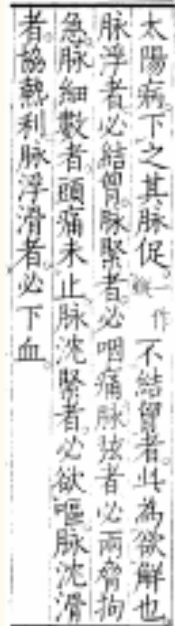 太陽病。下之其脉促。一作縱不結胷者。此為欲解也。
脉浮者必結胷。脉緊者。必咽痛。脉弦者必兩脅拘
急。脉細數者。頭痛未止。脉沈緊者。必欲嘔。脉沈滑
者。協熱利。脉浮滑者。必下血。